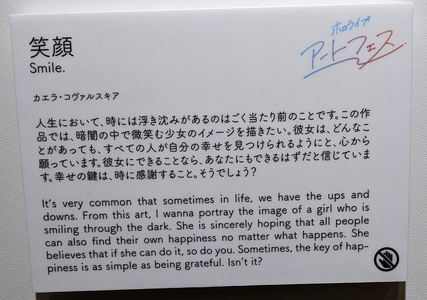 笑顔
Smile.
ホロライブ
アートフェス
カエラ・コヴァルスキア
人生において、時には浮き沈みがあるのはごく当たり前のことです。この作
品では、暗闇の中で微笑む少女のイメージを描きたい。彼女は、どんなこ
とがあっても、すべての人が自分の幸せを見つけられるようにと、心から
願っています。彼女にできることなら、あなたにもできるはずだと信じていま
す。幸せの鍵は、時に感謝すること。そうでしょう？
It's very common that sometimes in life, we have the ups and
downs. From this art, I wanna portray the image of a girl who is
smiling through the dark. She is sincerely hoping that all people
can also find their own happiness no matter what happens. She
believes that if she can do it, so do you. Sometimes, the key of hap-
piness is as simple as being grateful. Isn't it?